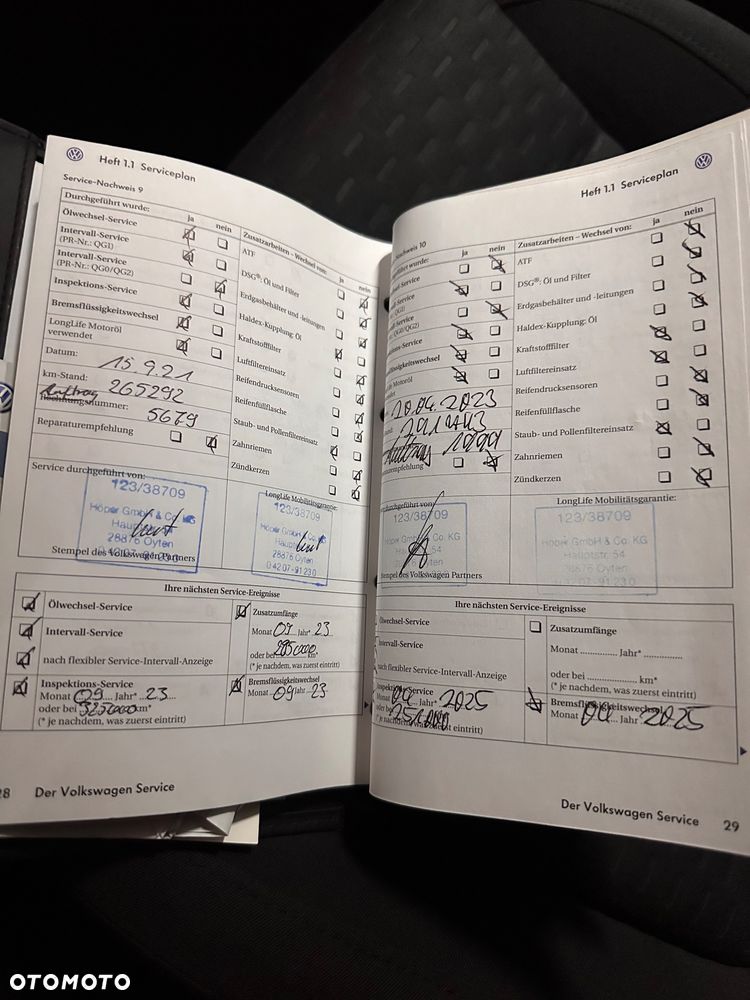 Heft 1.1 Serviceplan
Service-Nachweis 9
Durchgeführt wurde:
ja
nein
Ölwechsel-Service
Intervall-Service
(PR-Nr.: QG1)
Intervall-Service
(PR-Nr.: QG0/QG2)
Inspektions-Service
Bremsflüssigkeitswechsel
LongLife Motoröl
verwendet
Datum:
15.9.21
km-Stand:
265292
Auftrag
5679
Reparaturempfehlung
Zusatzarbeiten – Wechsel von:
ja
nein
ATF
DSG®: Öl und Filter
Erdgasbehälter und -leitungen
Haldex-Kupplung: Öl
Kraftstofffilter
Luftfiltereinsatz
Reifendrucksensoren
Reifenfüllflasche
Staub- und Pollenfiltereinsatz
Zahnriemen
Zündkerzen
Service durchgeführt von:
123/38709
Höper GmbH & Co. KG
28876 Oyten
Stempel des Volkswagen Partners
LongLife Mobilitätsgarantie:
123/38709
Höper GmbH & Co. KG
28876 Oyten
0 42 07 - 91 23 0
Ihre nächsten Service-Ereignisse
Ölwechsel-Service
Intervall-Service
nach flexibler Service-Intervall-Anzeige
Zusatzumfänge
Monat 09 Jahr* 23
oder bei 295000 km*
(* je nachdem, was zuerst eintritt)
Inspektions-Service
Monat 09 Jahr* 23
oder bei 325000 km*
(* je nachdem, was zuerst eintritt)
Bremsflüssigkeitswechsel
Monat 09 Jahr 23
28 Der Volkswagen Service
Heft 1.1 Serviceplan
Nachweis 10
wurde:
ja
nein
Service
QG1)
QG0/QG2)
Service
Motoröl
20.04.2023
Auftrag 1999
Zusatzarbeiten – Wechsel von:
ja
nein
ATF
DSG®: Öl und Filter
Erdgasbehälter und -leitungen
Haldex-Kupplung: Öl
Kraftstofffilter
Luftfiltereinsatz
Reifendrucksensoren
Reifenfüllflasche
Staub- und Pollenfiltereinsatz
Zahnriemen
Zündkerzen
123/38709
Höper GmbH & Co. KG
Stempel des Volkswagen Partners
LongLife Mobilitätsgarantie:
123/38709
Höper GmbH & Co. KG
Hauptstr. 54
28876 Oyten
0 42 07 - 91 23 0
Ihre nächsten Service-Ereignisse
Ölwechsel-Service
Intervall-Service
nach flexibler Service-Intervall-Anzeige
Zusatzumfänge
Monat Jahr*
oder bei km*
(* je nachdem, was zuerst eintritt)
Inspektions-Service
Monat 04 Jahr* 2025
oder bei
(* je nachdem, was zuerst eintritt)
Bremsflüssigkeitswechsel
Monat 04 Jahr 2025
Der Volkswagen Service 29
OTOMOTO